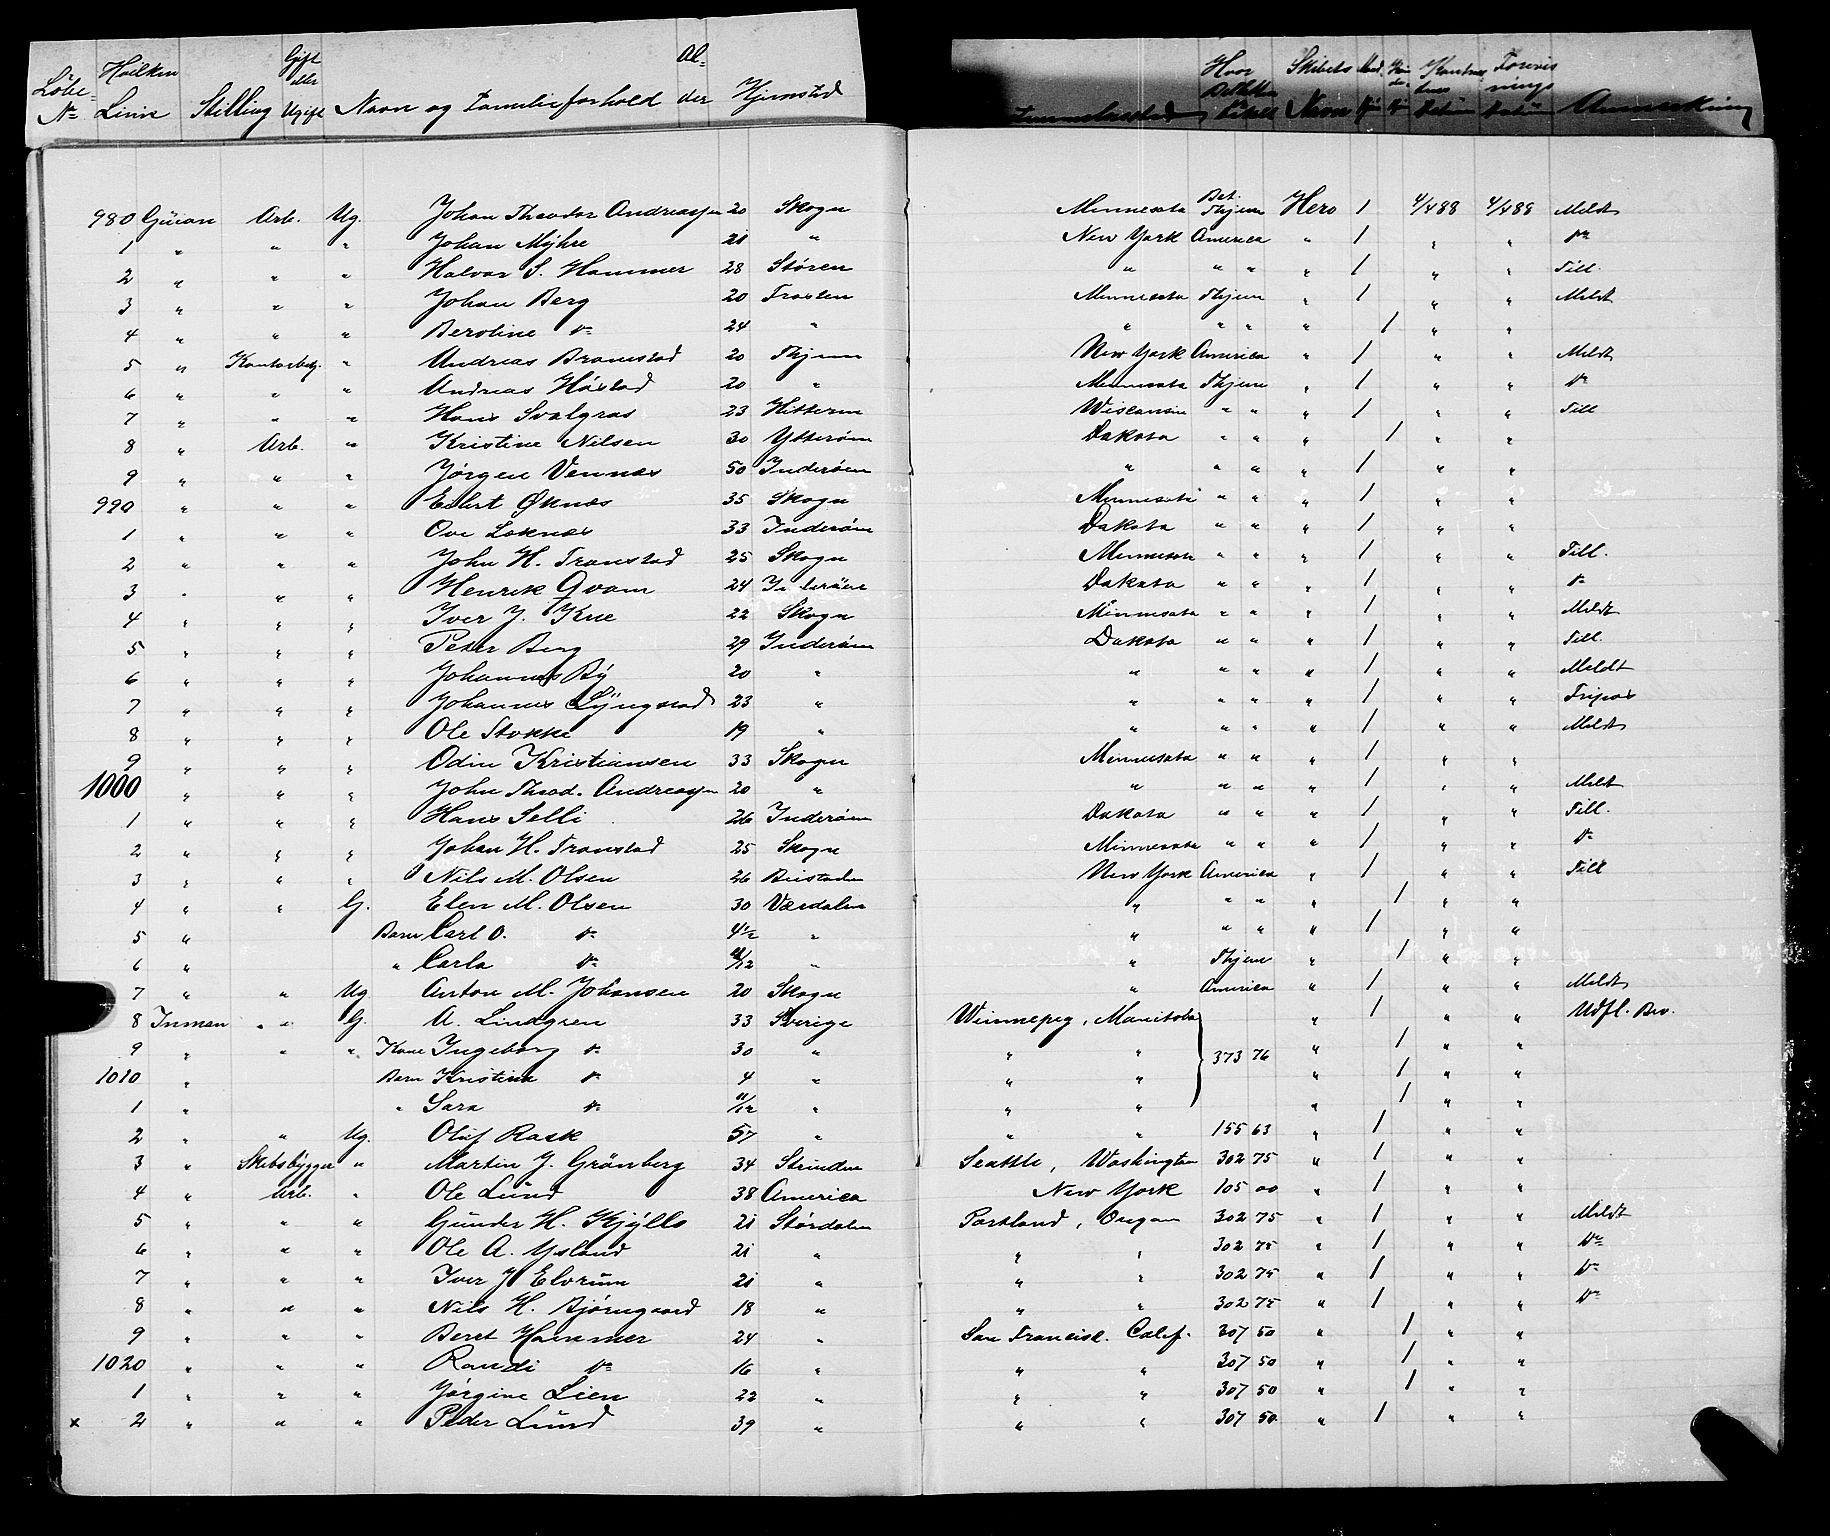 Löbe- Nr. Hvilken Linie Stilling Gift eller Ugift Navn og Familieforhold Alder Hjemsted Hvor Skibets Navn Anmerkning
980 Guion Arb. Ug. Johan Theodor Andreassen 20 Skogn Minnesota Bet. Thjem Hero 1 4/4 88 4/4 88 Meldt
1 " " " Johan Myhre 21 " New York America " 1 " " do
2 " " " Halvor S. Hammer 28 Støren " " " " 1 " " Till.
3 " " " Johan Berg 20 Frosten Minnesota Thjem " 1 " " Meldt
4 " " " Beroline do 24 " " " " " 1 " "
5 " Kontorbetj. " Andreas Bramstad 20 Thjem New York America " 1 " " Meldt
6 " " " Andreas Høstad 20 " Minnesota Thjem " 1 " " do
7 " " " Hans Svalgras 23 Hitteren Wisconsin " " " 1 " " Till
8 " Arb. " Kristine Nilsen 30 Ytterøen Dakota " " " 1 " "
9 " " " Jørgen Vennes 50 Inderøen " " " " 1 " "
990 " " " Eilert Øknes 35 Skogn Minnesota " " " 1 " "
1 " " " Ove Loknes 33 Inderøen Dakota " " " 1 " "
2 " " " John H. Tronstad 25 Skogn Minnesota " " " 1 " " Till.
3 " " " Henrik Qvam 24 Inderöen Dakota " " " 1 " " do
4 " " " Iver J. Krie 22 Skogn Minnesota " " " 1 " " Meldt
5 " " " Peder Berg 29 Inderøen Dakota " " " 1 " " Till.
6 " " " Johannes By 20 " " " " " 1 " " Meldt
7 " " " Johannes Lyngstad 23 " " " " " 1 " " Fripas
8 " " " Ole Stokke 19 " " " " " 1 " " Meldt
9 " " " Odin Kristiansen 33 Skogn Minnesota " " " 1 " "
1000 " " " John Theod. Andreassen 20 " " " " " 1 " " Meldt
1 " " " Hans Selli 26 Inderøen Dakota " " " 1 " " Till.
2 " " " Johan H. Tronstad 25 Skogn Minnesota " " " 1 " " do
3 " " " Nils M. Olsen 26 Beistaden New York America " 1 " " Till
4 " " G. Elen M. Olsen 30 Værdalen " " " " 1 " "
5 " Barn Carl O. do 4 1/2 " " " " " 1 " "
6 " " Carla do /12 " " Thjem " 1 " "
7 " " Ug Anton M. Johansen 20 Skogn " America " 1 " " Meldt
8 Inman " G. A. Lindgren 33 Sverige Winnepeg, Manitoba " 1 " " Udfl. Bev.
9 " " " Kone Ingeborg do 30 " " " 373 76 " 1 " "
1010 " Barn Kristina do 4 " " " " 1 " "
1 " " Sara do 11/12 " " " " 1 " "
2 " " Ug. Oluf Rask 57 " " " 155 63 " 1 " "
3 " Skibsbygger " Martin J. Grönberg 34 Strinden Seattle, Washington 302 75 " 1 " "
4 " Arb. " Ole Lund 38 America New York 105 00 " 1 " "
5 " " " Gunder H. Kjyllo 21 Størdalen Portland, Oregon 302 75 " 1 " " Meldt
6 " " " Ole A. Ysland 21 " " " 302 75 " 1 " " do
7 " " " Iver J Elvrum 21 " " " 302 75 " 1 " " do
8 " " " Nils H. Bjørngaard 18 " " " 302 75 " 1 " " do
9 " " " Beret Hammer 24 " San Francisc. Calif. 307 50 " 1 " "
1020 " " " Randi do 16 " " " 307 50 " 1 " "
1 " " " Jørgine Lien 22 " " " 307 50 " 1 " "
x 2 " " " Peder Lund 39 " " " 307 50 " 1 " "